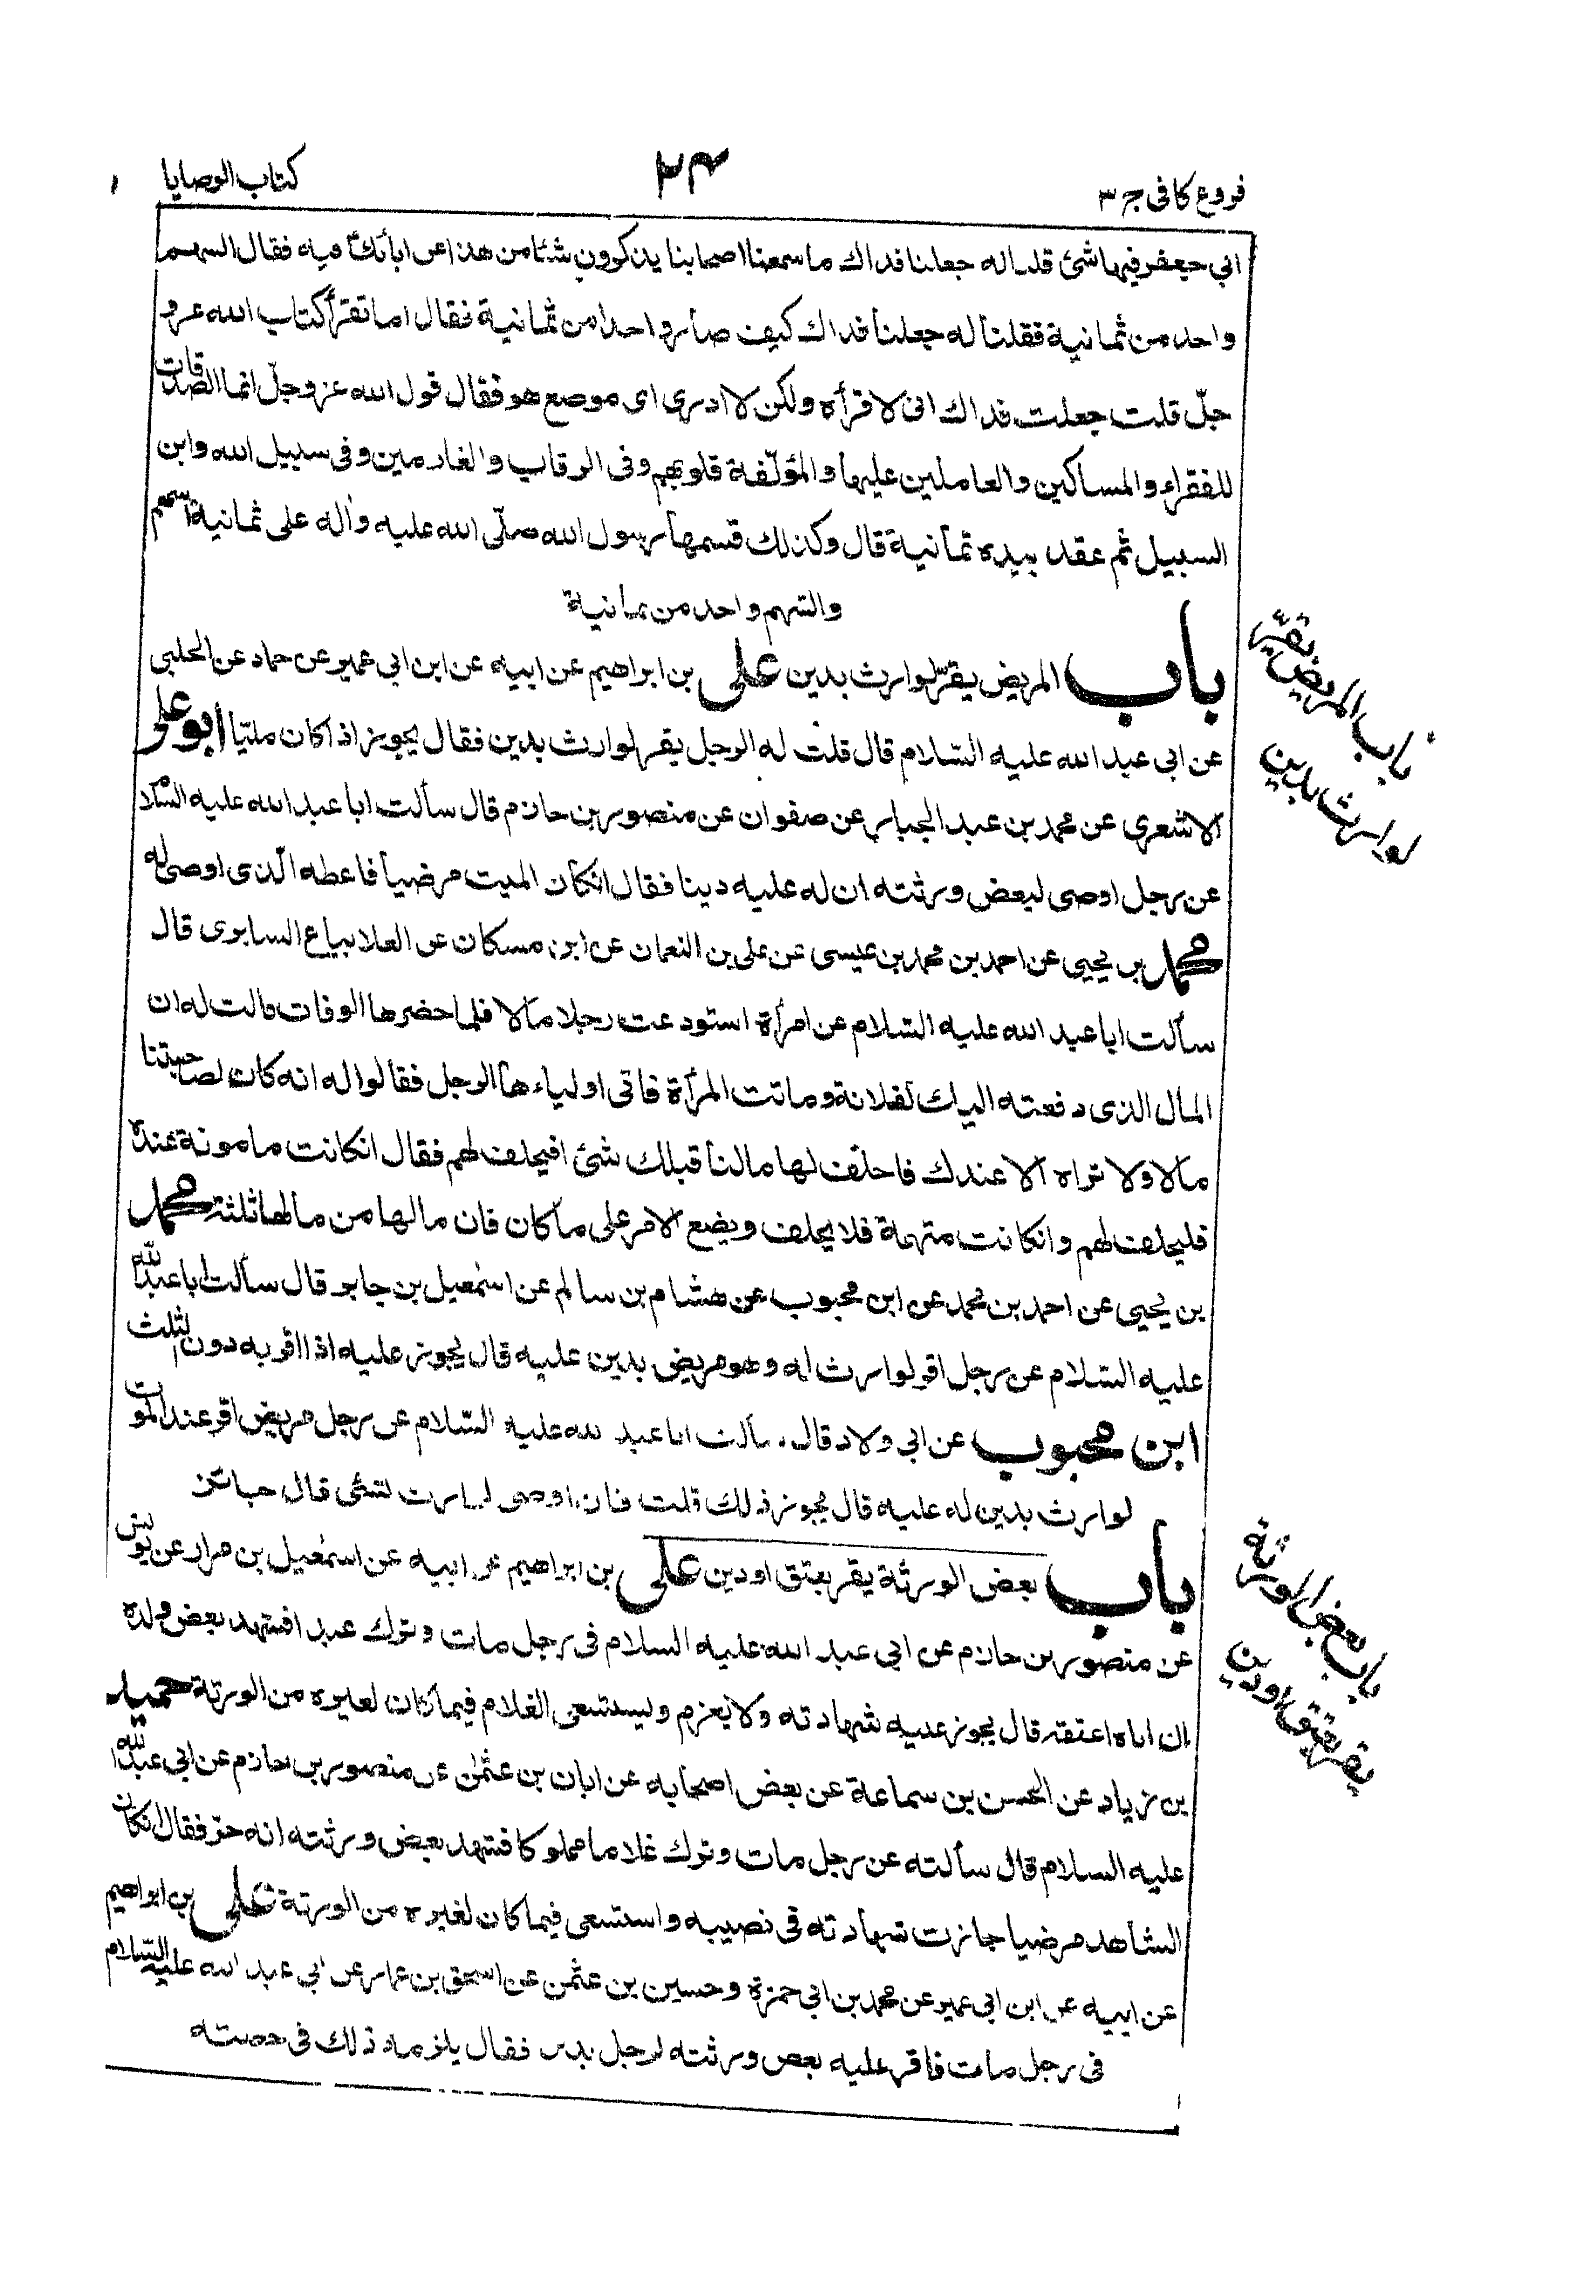 فروع كافى ج ٣
٢٤
كتاب الوصايا
ابي جعفر فيها شئ قلنا له جعلنا فداك ما سمعنا اصحابنا يذكرون شئا من هذا عن ابائك فيه فقال السهم
واحد من ثمانية فقلنا له جعلنا فداك كيف صار واحدا من ثمانية فقال اما تقرأ كتاب الله عزو
جلّ قلت جعلت فداك انى لا قرأه ولكن لا ادرى اى موضع هو فقال قول الله عز وجلّ انما الصدقات
للفقراء والمساكين والعاملين عليها والمؤلّفة قلوبهم وفى الرقاب والغارمين وفى سبيل الله وابن
السبيل ثم عقد بيده ثمانية قال وكذلك قسمها رسول الله صلّى الله عليه واله على ثمانية اسهم
والسّهم واحد من ثمانية
باب المريض يقرّ لوارث بدين على بن ابراهيم عن ابيه عن ابن ابى عمير عن حماد عن الحلبى
عن ابى عبد الله عليه السّلام قال قلت له الرجل يقر لوارث بدين فقال يجوز اذا كان مليّا ابو على
الاشعرى عن محمد بن عبد الجبار عن صفوان عن منصور بن حازم قال سألت ابا عبد الله عليه السّلام
عن رجل اوصى لبعض ورثته ان له عليه دينا فقال انكان الميت مرضيا فاعطه الّذى اوصى له
محمد بن يحيى عن احمد بن محمد بن عيسى عن على بن النعمان عن ابن مسكان عن العلا بياع السابرى قال
سألت ابا عبد الله عليه السّلام عن امرأة استودعت رجلا مالا فلما حضرها الوفات قالت له ان
المال الذى دفعته اليك لفلانة وماتت المرأة فاتى اولياءها الرجل فقالوا له انه كان لصاحبتنا
مالا ولا نراه الا عندك فاحلف لها مالنا قبلك شئ افيحلف لهم فقال انكانت مامونة عنده
فليحلف لهم وانكانت متهمة فلا يحلف ويضع الامر على ما كان فان مالها من مالها ثلثة محمد
بن يحيى عن احمد بن محمد عن ابن محبوب عن هشام بن سالم عن اسمعيل بن جابر قال سألت ابا عبد الله
عليه السّلام عن رجل اقر لوارث له وهو مريض بدين عليه قال يجوز عليه اذا اقر به دون الثلث
ابن محبوب عن ابى ولاد قال سألت ابا عبد الله عليه السّلام عن رجل مريض اقر عند الموت
لوارث بدين له عليه قال يجوز ذلك قلت فان اوصى لوارث لشئ قال جائز
باب بعض الورثة يقر بعتق او دين على بن ابراهيم عن ابيه عن اسمعيل بن مرار عن يونس
عن منصور بن حازم عن ابى عبد الله عليه السلام فى رجل مات وترك عبدا فشهد بعض ولده
ان اباه اعتقه قال يجوز عليه شهادته ولا يغرم ويستسعى الغلام فيما كان لغيره من الورثة حميد
بن زياد عن الحسن بن سماعة عن بعض اصحابه عن ابان بن عثمٰن عن منصور بن حازم عن ابى عبد الله
عليه السلام قال سألته عن رجل مات وترك غلاما مملوكا فشهد بعض ورثته انه حر فقال انكان
الشاهد مرضيا جازت شهادته فى نصيبه واستسعى فيما كان لغيره من الورثة على بن ابراهيم
عن ابيه عن ابن ابى عمير عن محمد بن ابى حمزة وحسين بن عثمن عن اسحق بن عمار عن ابى عبد الله عليه السّلام
فى رجل مات فاقر عليه بعض ورثته لرجل بدين فقال يلزمه ذلك فى حصته
باب المريض يقرّ
لوارث بدين
باب بعض الورثة
يقر بعتق او دين